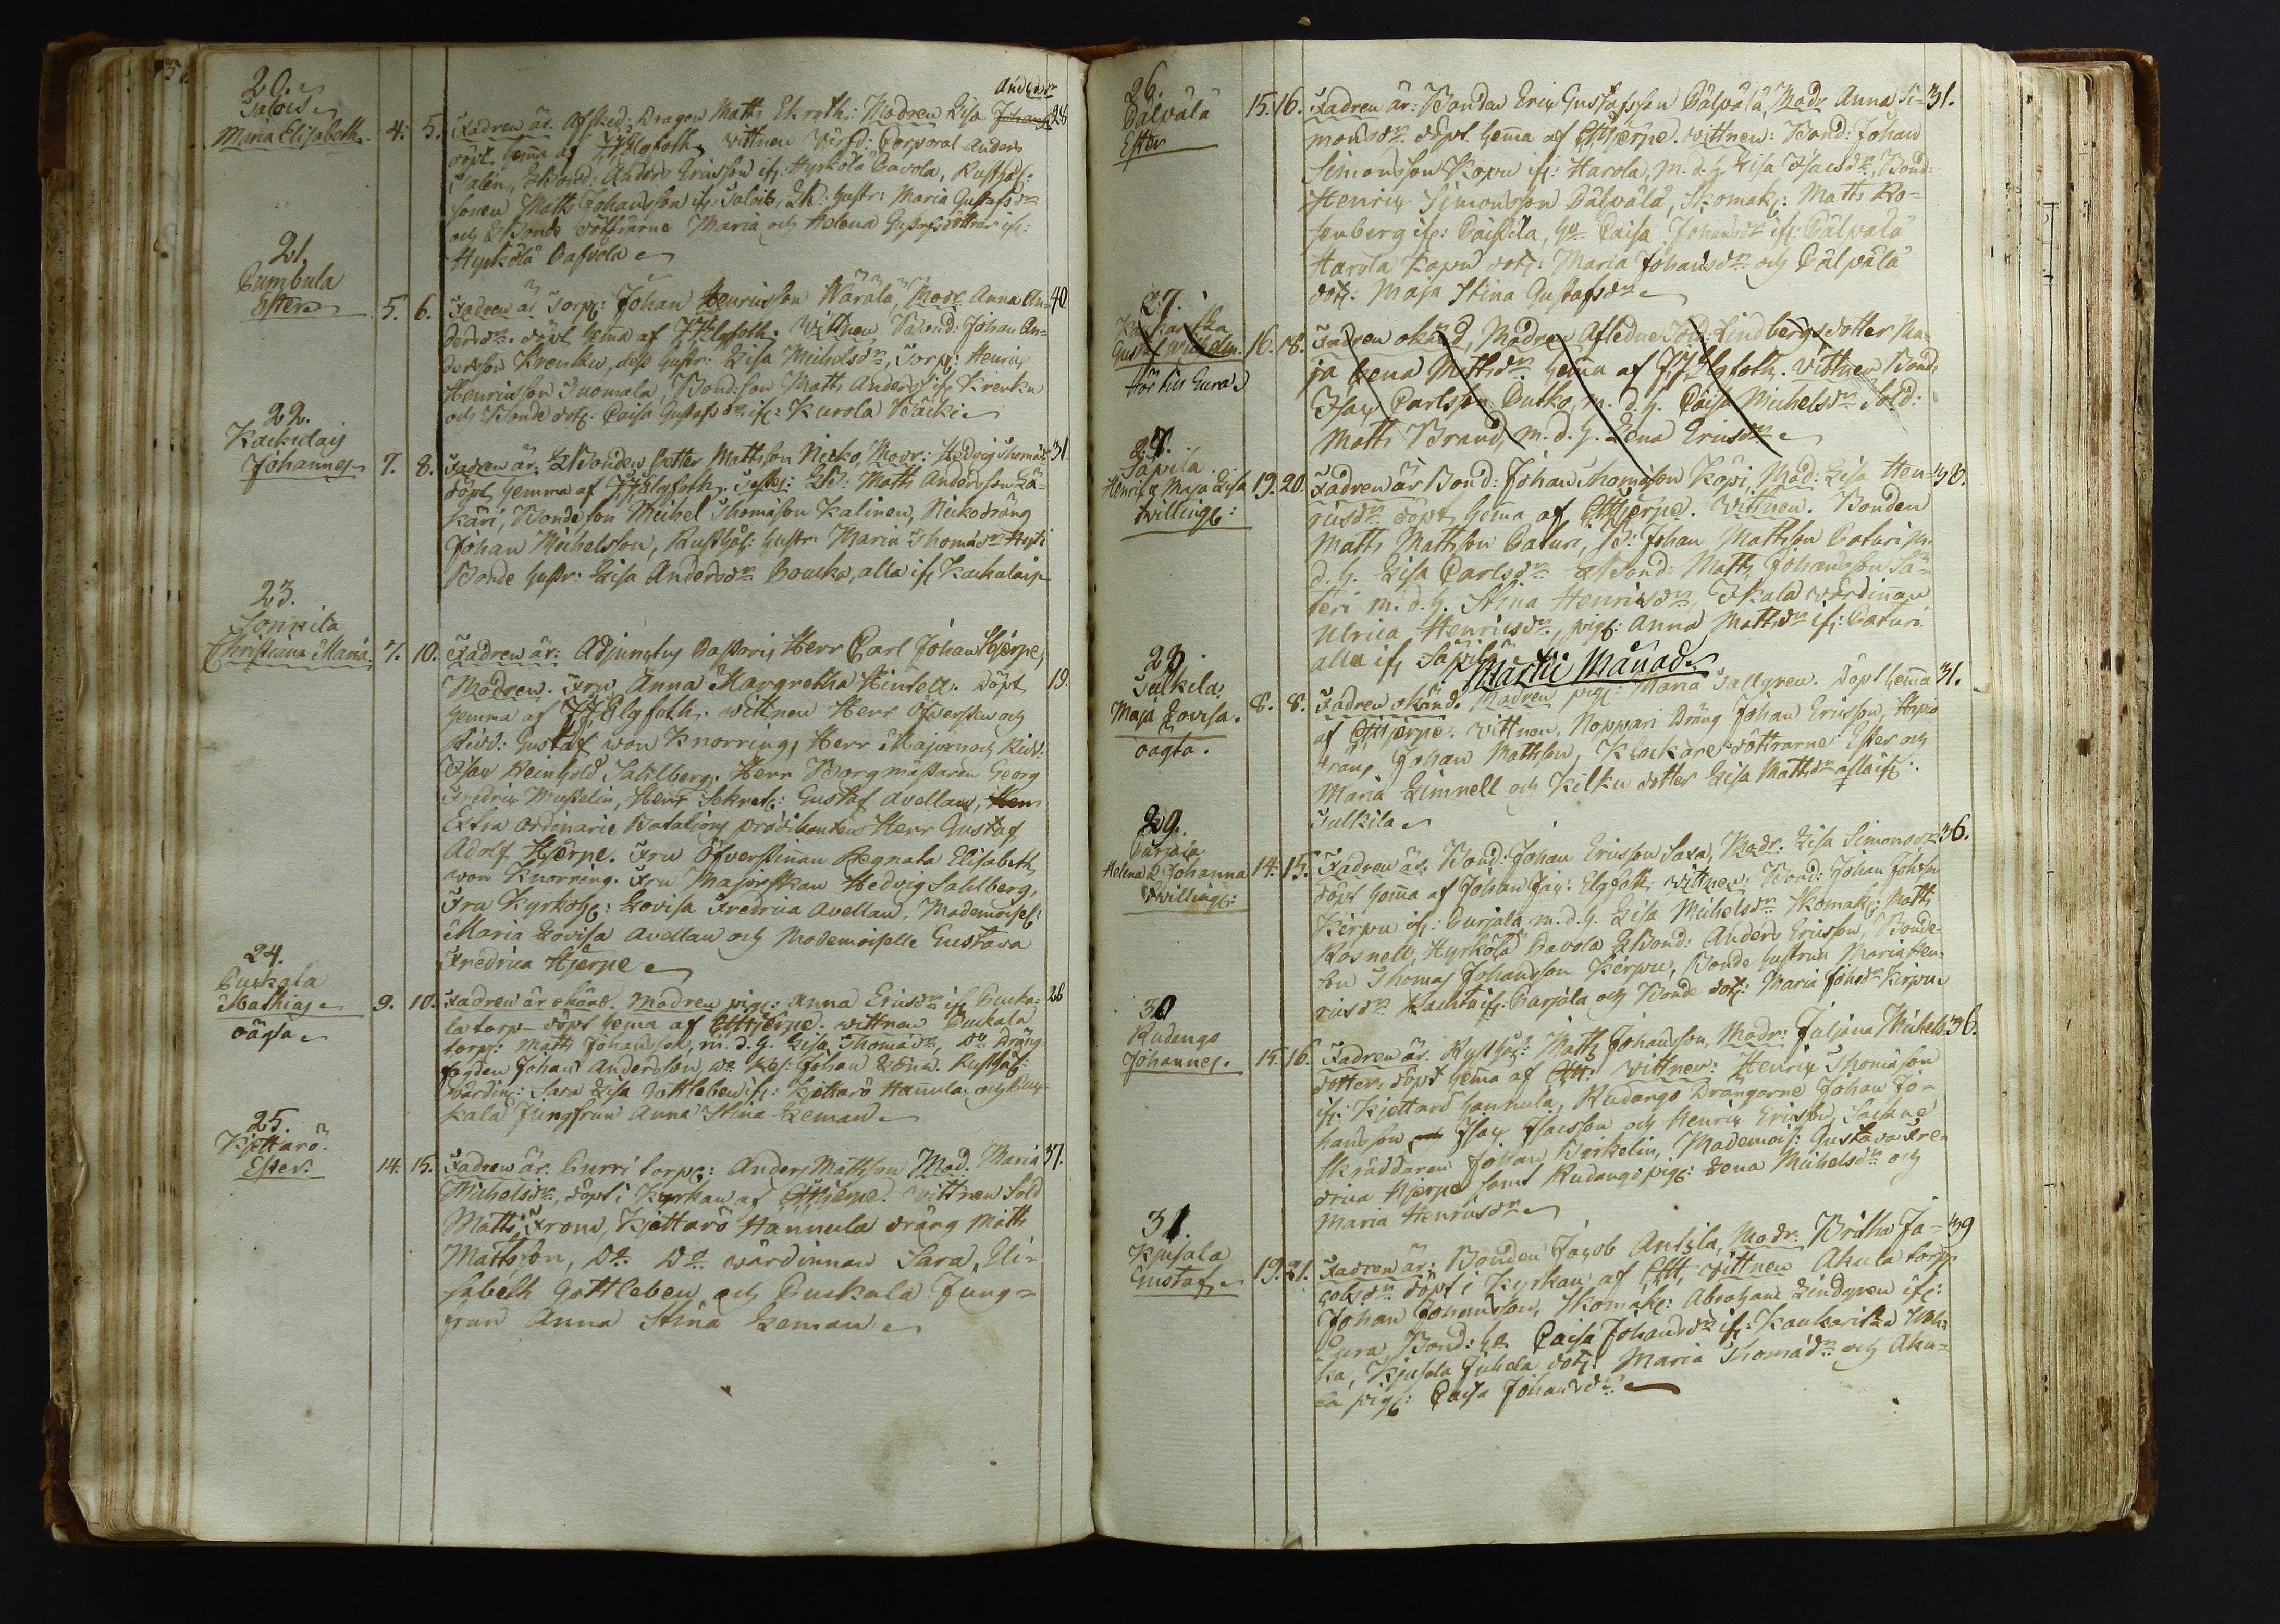 20.
Salois
Maria Elisabeth. 4. 5.
Andersdr
Fadren är. Afsked: Dragon Matts Ekroth: Modren Lisa 28
döpt hema af JJElgfoth, Vittnen Afskd: Corporal Anders
Salen, LBond: Anders Ericsson if: Hyrkölä Pavola, Rusthål:
sonen Matts Johansson if. Salois, LB: hustr: Maria Gustafsdr
och LBonde döttrarne Maria och Helena Gustafsdöttrar if:
Hyrkölä Pafvola
21.
Cumbula
Ester 5. 6.
Fadren är Torp: Johan Henricsson Wärälä, Modr Anna An- 40.
dersdr. döpt hema af JJElgfoth. Vittnen Bond: Johan An-
dersson Krenku, dess hustr: Lisa Michelsdr, Torp: Henric
Henricsson Tuomala, Bond:son Matts Anders: if: Krenku
och Bonde dot: Caisa Gustafsdr if: Kurola Bäcki
22.
Kaukalais
Johannes 7. 8.
Fadren är. LBonden Petter Mattsson Nicko, Modr: Hedvig Thomasdr 31
döpt hemma af JJElgfoth. Test: LB: Matts Andersson Lä-
käri, Bonde son Michel Thomasson Kalinen, Nicko dräng
Johan Michelsson, Rusthål: hustr: Maria Thomasdr
Bonde hustr: Lisa Andersdr Poucka, alla if. Kaukalais
23.
Sonnila
Christiana Maria. 7. 10.
Fadren är: Adjunctus Pastoris Herr Carl Johan Hjerpe,
Modren. Fru Anna Margretha Hintell. Döpt 19.
hemma af JJElgfoth. Vittnen Herr Öfversten och
Ridd: Gustaf von Knorring, Herr Majorn och Ridd:
Isac Reinhold Sahlberg. Herr Borgmästaren Georg
Fredric Muselin, Herr Sekret: Gustaf Avellan, Herr
Extra ordinarie Batalions predikanten Herr Gustaf
Adolf Hjerpe. Fru Öfverstinnan Regnata Elisabeth
von Knorring. Fru Majorskan Hedvig Sahlberg,
Fru Kyrkoh: Lovisa Fredrica Avellan, Mademoisel:
Maria Lovisa Avellan och Mademoiselle Gustava
Fredrica Hjerpe
24.
Puckala
Mathias 9. 10.
oägta
Fadren är okänd. Modren pig: Anna Ericsdr if. Pucka- 26
la torp. döpt hema af CHHjerpe. Vittnen Puckala
torp: Matts Johansson, m. d. h. Lisa Thomasdr, Do Dräng
Fogden Johan Andersson, Johan Rusthål:
värdin: Sara Lisa Gottleben if: Kjettarö Hannula och Puc-
kala Jungfrun Anna Stina Leman
25.
Kjettarö.
Ester. 14. 15.
Fadren är. Purri torp: Anders Mattsson Mod. Maria 37.
Michelsdr, döpt i Kyrkan af CHHjerpe. Vittnen Sold
Matts From, Kjettarö Hannula dräng Matts
Mattsson, Do Do wärdinnan Sara, Eli-
sabeth Gottleben och Puckala Jung-
frun Anna Stina Leman
26.
Pälpälä
Ester 15. 16.
Fadren är: Bonden Eric Gustafsson Pälpälä, Modr Anna Si- 31.
monsdr döpt hema af CHHjerpe. Vittnen: Bond: Johan
Simonsson Kopu if: Harola, m. d. h Lisa Isacsdr, Bond:
Henric Simonsson Pälpälä, Skomak: Matts Ro-
senberg if: Paisila, ho Caisa Johansdr if: Pälpälä
Harola Kopu dot: Maria Johansdr och Pälpälä
dot: Maja Stina Gustafsdr
27.
Gustaf Wilhelm. 16. 18.
Hör till Eura
Fadren okänd, Modren Aflednе Sold: Lindbergs dotter Ma-
ja Lena Mattsdr hema af JJElgfoth. Vittnen Bond:
Isac Carlsson Putko, m. d. h. Caisa Michelsdr Sold:
Matts Brand, m. d. h. Lena Ericsdr
27.
Säpilä
Henric & Maja Lisa 19. 20.
twilling:
Fadren är Bond: Johan Thomasson Köpi, Mod: Lisa Hen- 38.
ricsdr döpt hema af CHHjerpe. Vittnen. Bonden
Matts Mattsson Paturi, B: Johan Mattsson Paturi m.
d. h. Lisa Carlsdr LBond: Matts Johansson Sä-
teri m. d. h. Stina Henricsdr, Skala värdinnan
Ulrica Henricsdr, pig: Anna Mattsdr if: Paturi
alla if. Säpilä
Martii Månad
28.
Sulkila
Maja Lovisa. 8. 8.
oagta.
Fadren okänd. Modren pig: Maria Sallgren. Döpt hema 31.
af CHHjerpe. Vittnen, Noppari Dräng Johan Ericsson,
dräng Johan Mattsson, Klockare döttrarne Ester och
Maria Limnell och Kilku dotter Lisa Mattsdr alla if:
Sulkila
29.
Purjala
Helena & Johanna 14. 15.
twilling:
Fadren är. Bond: Johan Ericsson Saxa, Modr. Lisa Simonsdr 36.
döpt hema af Johan Jac: Elgfoth Vittnen: Bond: Johan Johsson
Kirpu if: Purjala m. d. h. Lisa Michelsdr Skomak: Matts
Rosnell, Hyrkölä Pavola LBond: Anders Ericsson, Bonde
son Thomas Johansson Kirpu, Bonde hustrun Maria Hen-
ricsdr if: Purjala och Bonde dot: Maria Johsdr Kirpu
30
Rudango
Johannes. 15. 16.
Fadren är. Rusthål: Matts Johansson, Modr: Juliana Michels- 36.
dotter: döpt hema af CHH. Vittnen: Henric Thomasson
if: Kjettarö Hannula, Rudango Drängarne Johan Jo-
hansson Isac Isacsson och Henric Ericsson, Sockne
skräddaren Johan Birkelin, Mademois: Gustava Fre-
drica Hjerpe samt Rudango pig: Lena Michelsdr och
Maria Henricsdr
31.
Kjusala
Gustaf 19. 21.
Fadren är: Bonden Jacob Antila, Modr: Britha Ja- 39
cobsdr döpt i Kyrkan af CHH, Vittnen Akula torp:
Johan Johansson, Skomak: Abraham Lindgren if:
Eura, Bond: ho Caisa Johansdr if:
Kjusala Juhala dot: Maria Thomasdr och Aku-
la pig: Caisa Johansdr